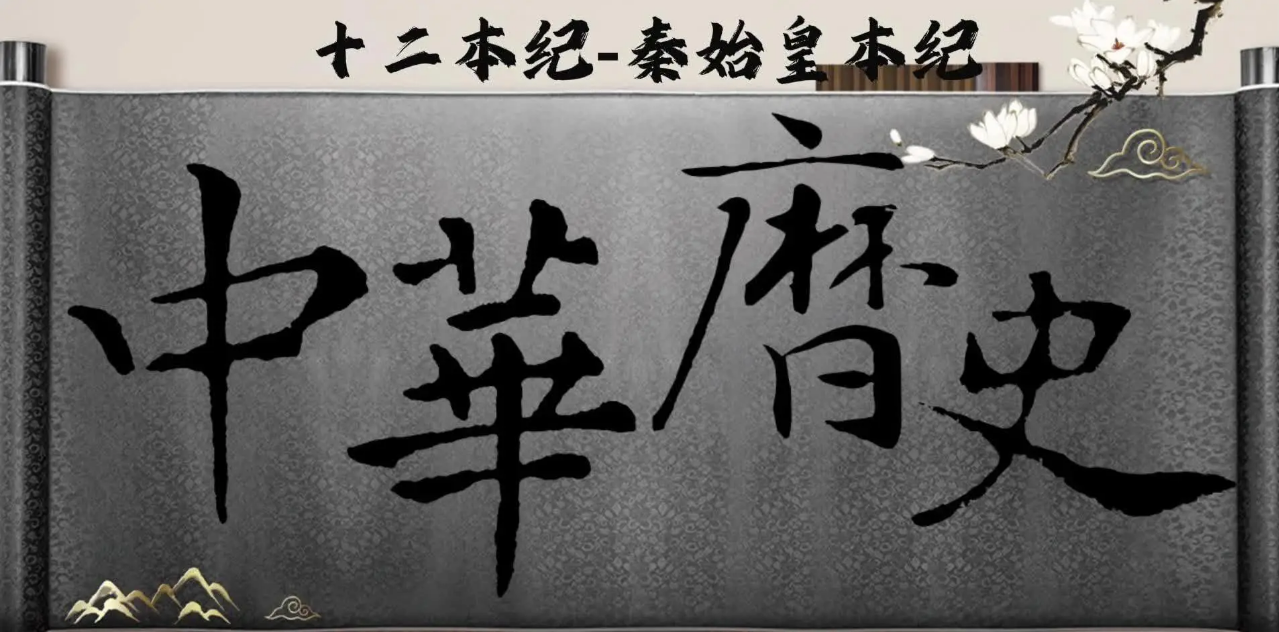 十二本纪-秦始皇本纪
中華曆史